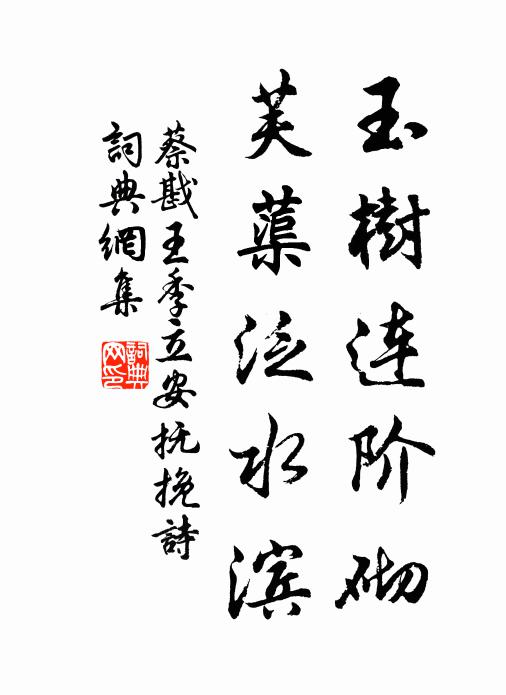 玉樹连阶砌
芙蕖泛水滨
蔡戡王季立安抚挽詩
詞典網集
詞典网印